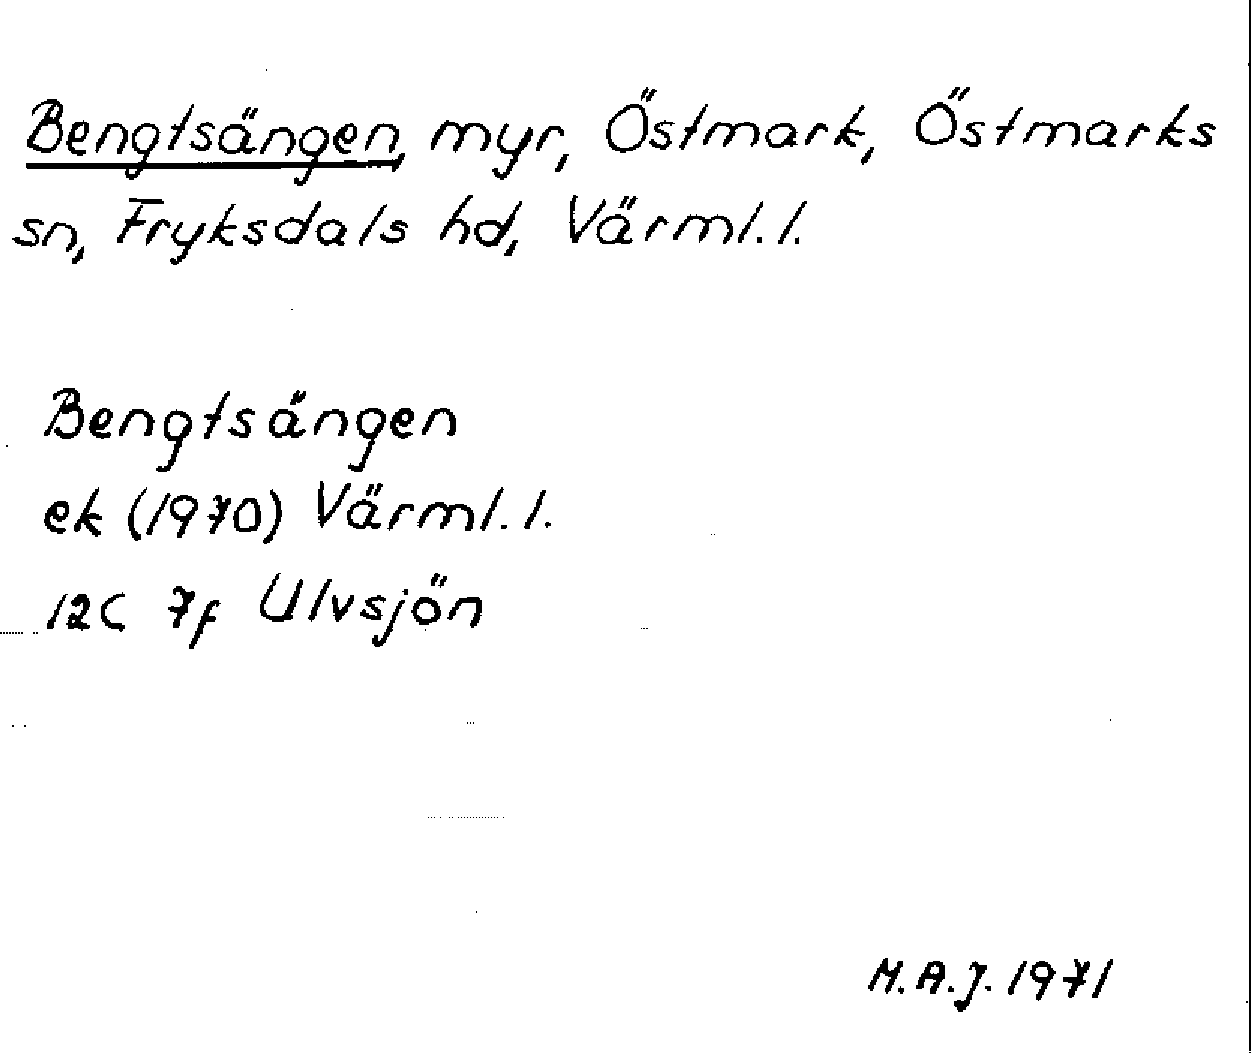 Bengtsängen, myr, Östmark, Östmarks
sn, Fryksdals hd, Värml. l.
Bengtsängen
ek (1970) Värml. l.
12C 7f Ulvsjön
M.A.J. 1971